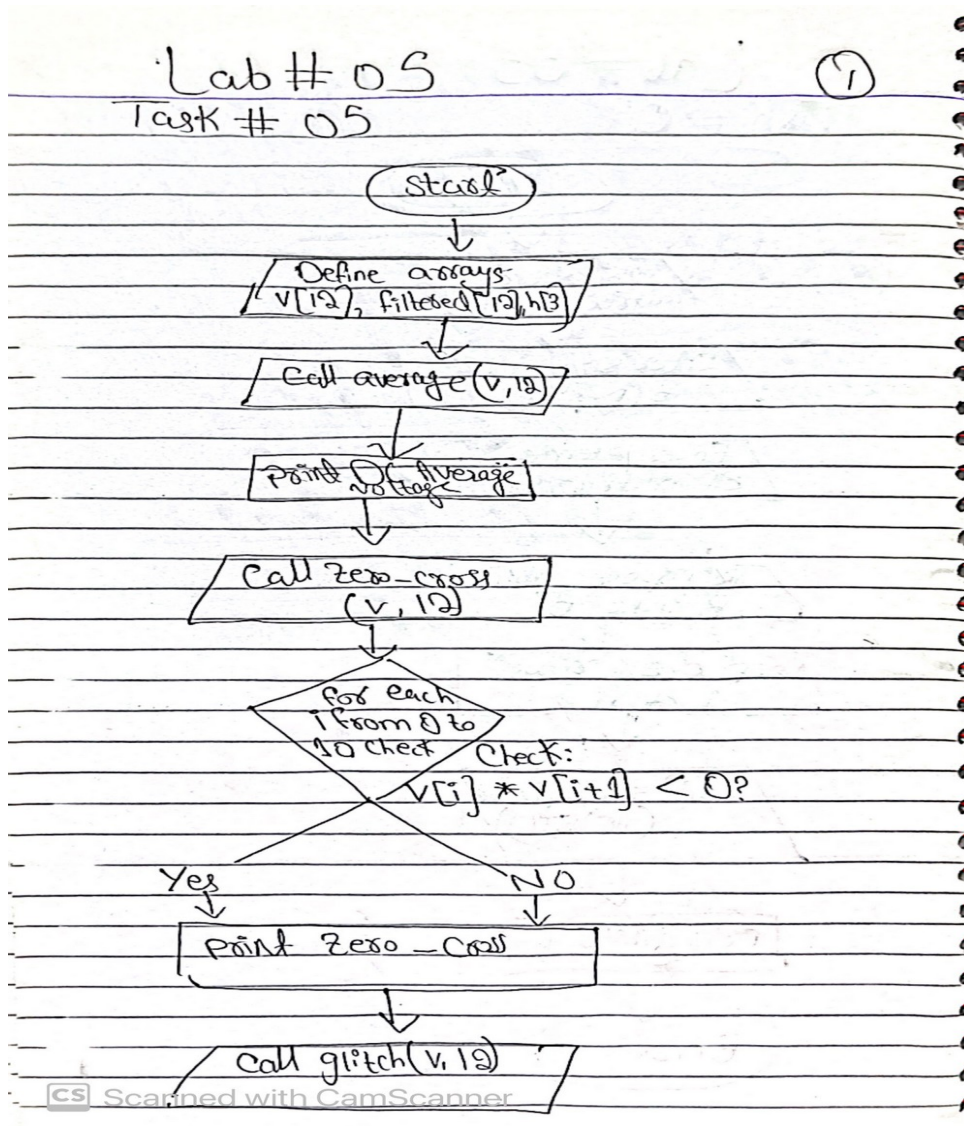 Lab # 05
1
Task # 05
Start
Define arrays
V[12], filtered[12], h[3]
Call average(v,12)
Print DC Average
voltage
Call Zero-cross
(v, 12)
for each
i from 0 to
10 check
Check:
V[i] * V[i+1] < 0?
Yes
NO
print Zero-Cross
Call glitch(v, 12)
CS Scanned with CamScanner